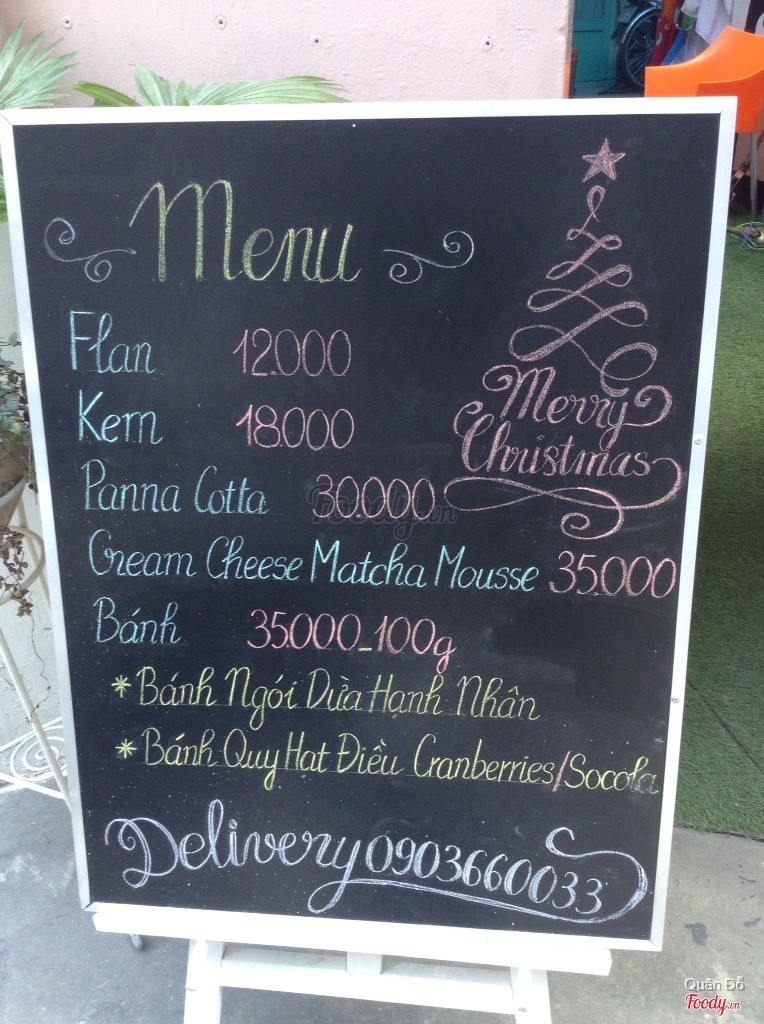 Menu
Flan 12.000
Kem 18.000
Panna Cotta 30.000
Merry
Christmas
Cream Cheese Matcha Mousse 35.000
Bánh 35.000_100g
* Bánh Ngói Dừa Hạnh Nhân
* Bánh Quy Hạt Điều Cranberries/Socola
Delivery 0903660033
Foody.vn
Quân Đỗ
Foody.vn